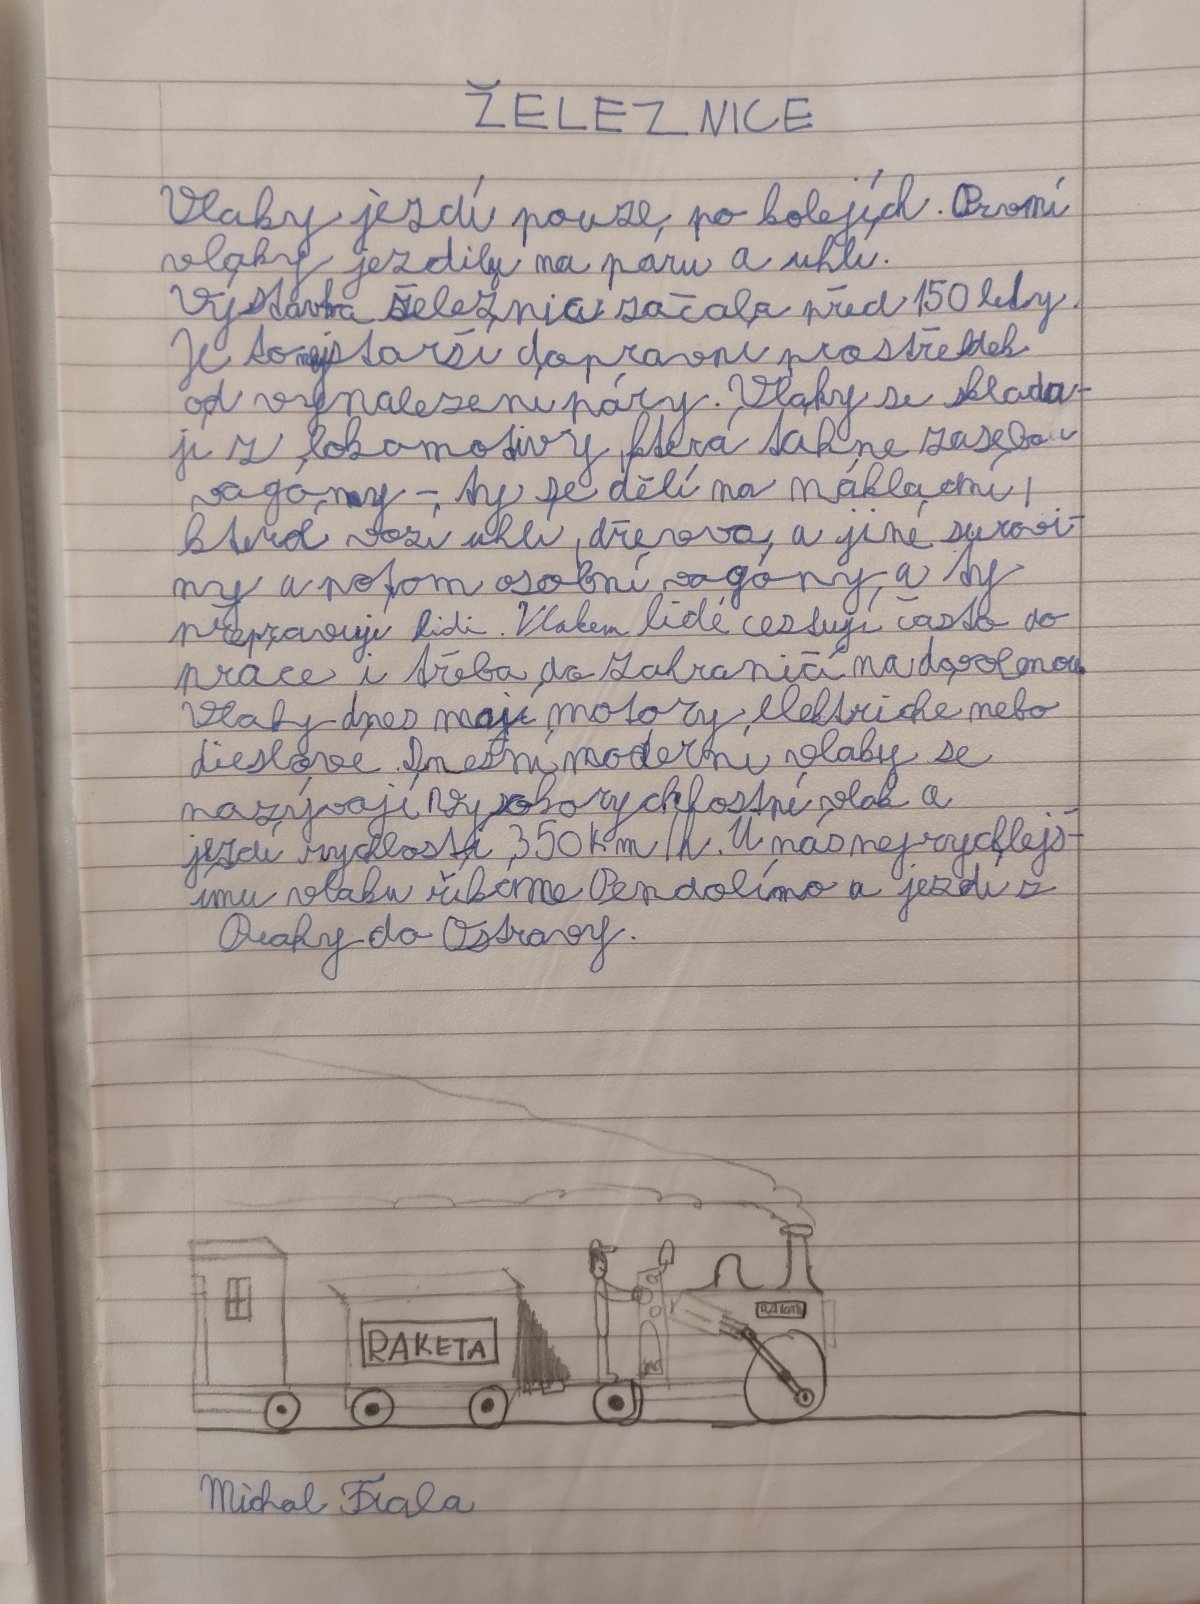 ŽELEZNICE
Vlaky jezdí pouze po kolejích. První
vlaky jezdily na páru a uhlí.
Výstavba železnic začala před 150 lety.
Je to nejstarší dopravní prostředek
od vynalezení páry. Vlaky se sklada-
ji z lokomotivy, která táhne za sebou
vagóny - ty se dělí na nákladní,
které vozí uhlí, dřevo, a jiné surovi-
ny a potom osobní vagóny, a ty
přepravuji lidi. Vlakem lidé cestují často do
práce i třeba do zahraničí na dovolenou
Vlaky dnes maji motory elektriche nebo
dieslove. Dnešní moderní vlaky se
nazývají vysokorychlostní vlak a
jezdí rychlostí 350 km/h. U nás nejrychlejš-
ímu vlaku řikáme Pendolíno a jezdí z
Prahy do Ostravy.
RAKETA
RAKETA
Michal Fiala